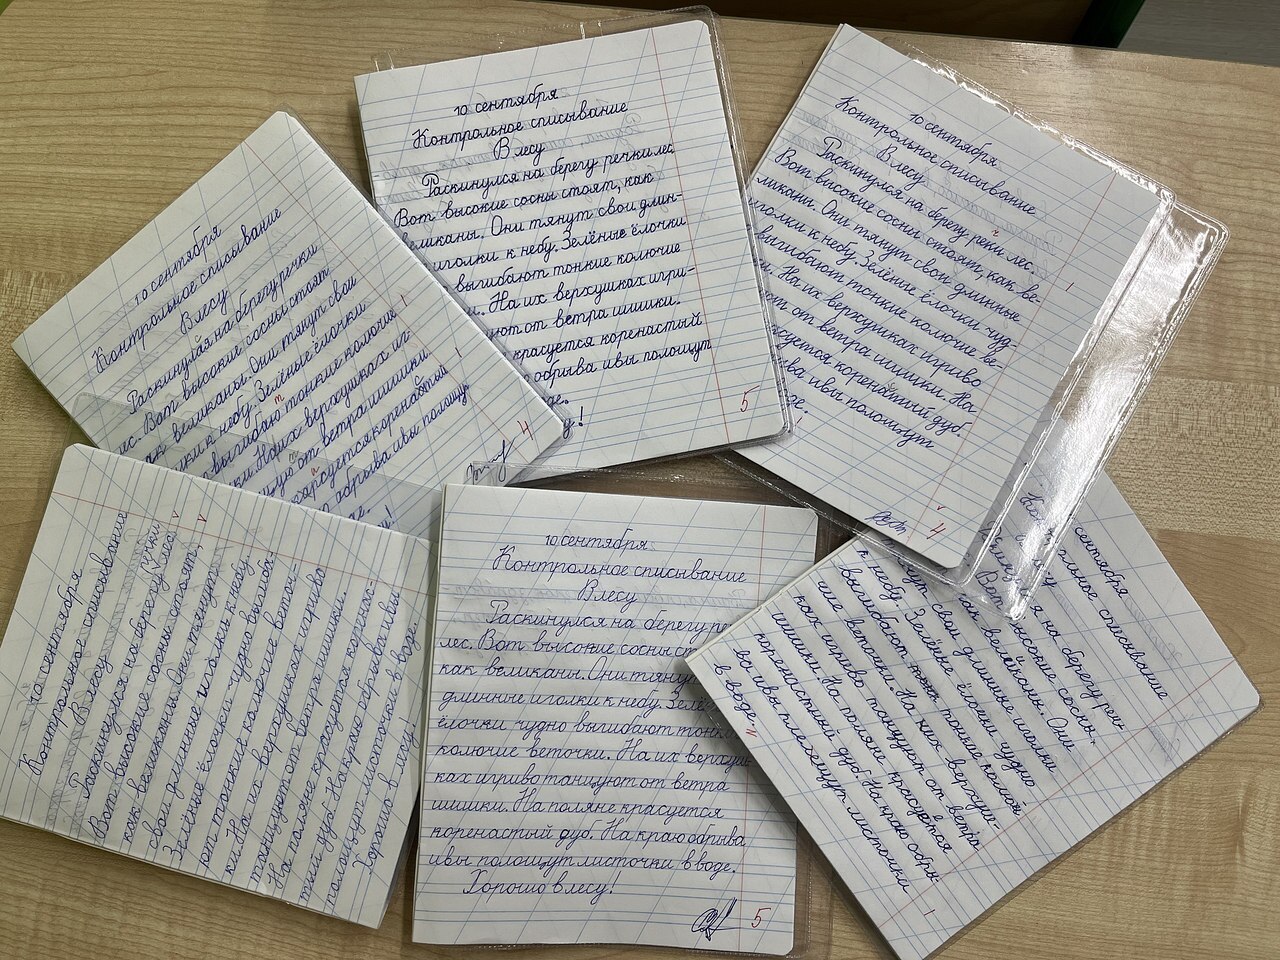 10 сентября
Контрольное списывание
В лесу
Раскинулся на берегу речки
лес. Вот высокие сосны стоят
как великаны. Они тянут свои
к небу. Зелёные ёлочки
выгибают тонкие колючие
На их верхушках иг-
от ветра шишки.
красуется коренастый
обрыва ивы полощут
4
10 сентября
Контрольное списывание
В лесу
Раскинулся на берегу речки лес.
Вот высокие сосны стоят, как
великаны. Они тянут свои длин-
иголки к небу. Зелёные ёлочки
выгибают тонкие колючие
На их верхушках игри-
от ветра шишки.
красуется коренастый
обрыва ивы полощут
5
10 сентября
Контрольное списывание
В лесу
Раскинулся на берегу реки лес.
Вот высокие сосны стоят, как ве-
ликаны. Они тянут свои длинные
иголки к небу. Зелёные ёлочки чуд-
выгибают тонкие колючие ве-
На их верхушках игриво
от ветра шишки. На
коренастый дуб.
ивы полощут
4
10 сентября
Контрольное списывание
В лесу
Раскинулся на берегу речки лес.
Вот высокие сосны стоят,
как великаны. Они тянут
свои длинные иголки к небу.
Зелёные ёлочки чудно выгиба-
ют тонкие колючие веточ-
ки. На их верхушках игриво
танцуют от ветра шишки.
На поляне красуется коренас-
тый дуб. На краю обрыва ивы
полощут листочки в воде.
Хорошо в лесу!
10 сентября
Контрольное списывание
В лесу
Раскинулся на берегу ре
лес. Вот высокие сосны ст
как великаны. Они тянут
длинные иголки к небу. Зелё
ёлочки чудно выгибают тонки
колючие веточки. На их верхуш-
ках игриво танцуют от ветра
шишки. На поляне красуется
коренастый дуб. На краю обрыва
ивы полощут листочки в воде.
Хорошо в лесу!
5
сентября
списывание
на берегу реч-
высокие сосны,
как великаны. Они
свои длинные иголки
к небу. Зелёные ёлочки чудно
выгибают тонкие колючи
чие веточки. На их верхуш-
ках игриво танцуют от ветра
шишки. На поляне красуется
коренастый дуб. На краю обры-
ва ивы плещут листочки
в воде.